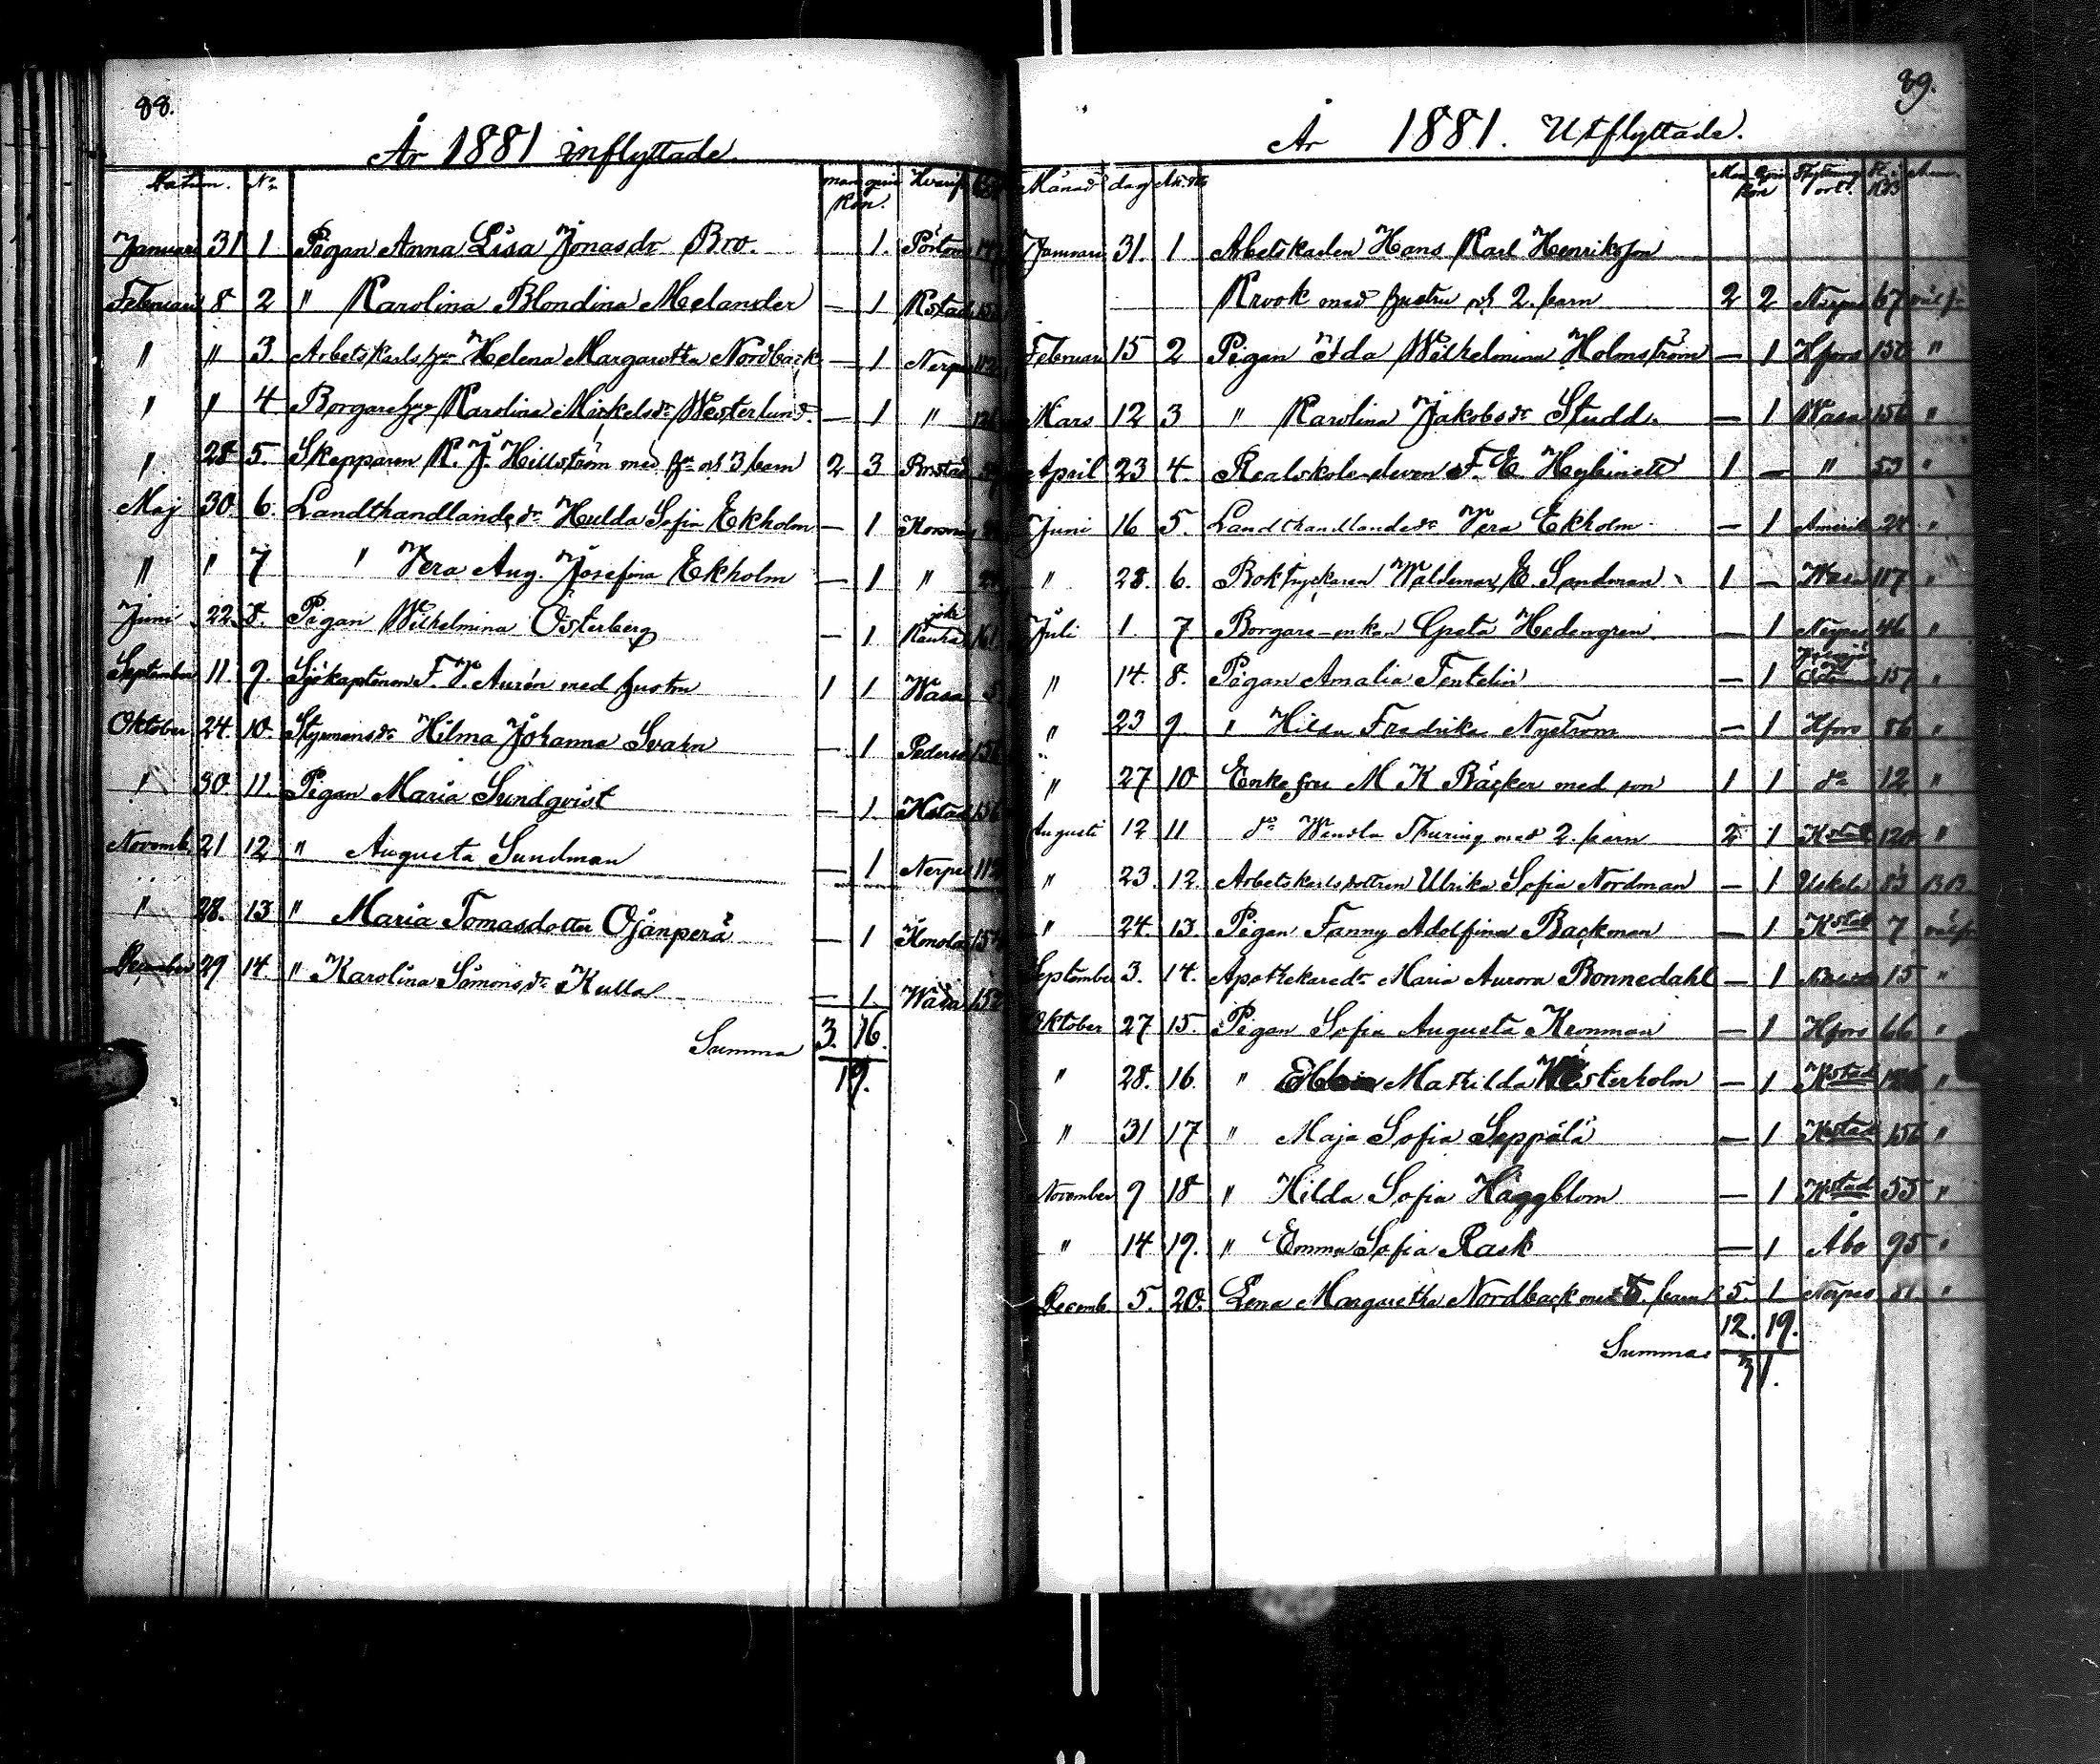 88.
År 1881 inflyttade.
Datum. No man qvin kön. Hvarifr.
Januari 31 1 Pigan Anna Lisa Jonasdr Bro. 1. Pörtom
Februari 8 2 " Karolina Blondina Melander — 1 Kstad
" " 3. Arbetskarls hu Helena Margaretha Nordback — 1 Nerpes 112
" " 4 Borgare Karolina Mickelsdr Westerlund — 1 "
" 28 5. Skepparen K. J. Hillström med hu och 3 barn 2 3
Maj 30. 6. Landthandlandedr Hulda Sofia Ekholm — 1
" " 7 " Vera Aug. Josefina Ekholm — 1 "
Juni 22 8. Pigan Wilhelmina Österberg — 1 161
September 11. 9. Sjökaptenen F. V. Aurén med hustru 1 1 Wasa 5
Oktober 24. 10. Styrmansdr Hilma Johanna Svahn — 1 Pedersö 156
" 30. 11. Pigan Maria Sundqvist — 1. Kstad 156
Novemb. 21 12 " Augusta Sundman — 1 Nerpes 112
" 28. 13 " Maria Tomasdotter Ojanperä — 1
December 29 14. " Karolina Simonsdr Kulla — 1. Wasa 152
Summa 3. 16.
19.
89.
År 1881. Utflyttade.
Månad dag Man Qvin kön Flyttnings ort.
Januari 31. 1 Arbetskarlen Hans Karl Henriksson
Krook med hustru och 2. barn 2 2 Nerpes 67
Februari 15 2 Pigan Ida Wilhelmina Holmström — 1 Hfors 150 "
Mars 12 3 " Karolina Jakobsdr Studd. — 1 Wasa 156 "
April 23 4. Realskole-eleven F. E. Heybinett 1 — " 53 "
Juni 16 5. Landthandlandedr Vera Ekholm — 1 Amerik 24 "
" 28. 6. Boktryckaren Waldemar E. Sandman 1 — Wasa 117 "
Juli 1. 7. Borgare-enkan Greta Hedengren. — 1 Nerpes 46 "
" 14. 8. Pigan Amalia Fentelin — 1 157 "
" 23 9. " Hilda Fredrika Nyström — 1 Hfors 86 "
" 27 10 Enkefru M K Bäcker med son 1 1 do 12 "
Augusti 12 11 do Wendla Thuring med 2. barn 2 1 Kstad 120 "
" 23. 12. Arbetskarlsdottren Ulrika Sofia Nordman — 1 83
" 24. 13. Pigan Fanny Adolfina Backman — 1 Kstad 7
September 3. 14. Apothekaredr Maria Aurora Bonnedahl — 1 15 "
Oktober 27 15. Pigan Sofia Augusta Kronman — 1 Hfors 66 "
" 28. 16. " Mathilda Westerholm — 1 Kstad "
" 31 17 " Maja Sofia Seppälä — 1 Kstad 156 "
November 9 18 " Hilda Sofia Häggblom — 1 Kstad 55 "
" 14 19. " Emma Sofia Rask — 1 Åbo 95 "
Decemb. 5. 20. Lena Margaretha Nordback med 5. barn 5. 1 Nerpes 81 "
Summa 12. 19.
31.